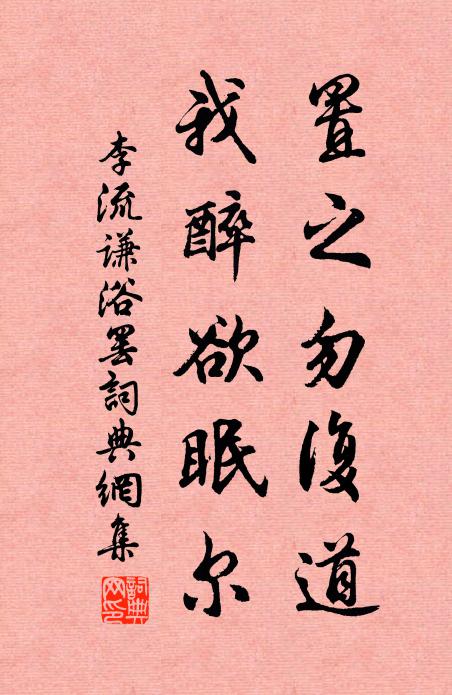 置之勿復道
我醉欲眠尔
李流謙浴罷詞典網集
詞典网印